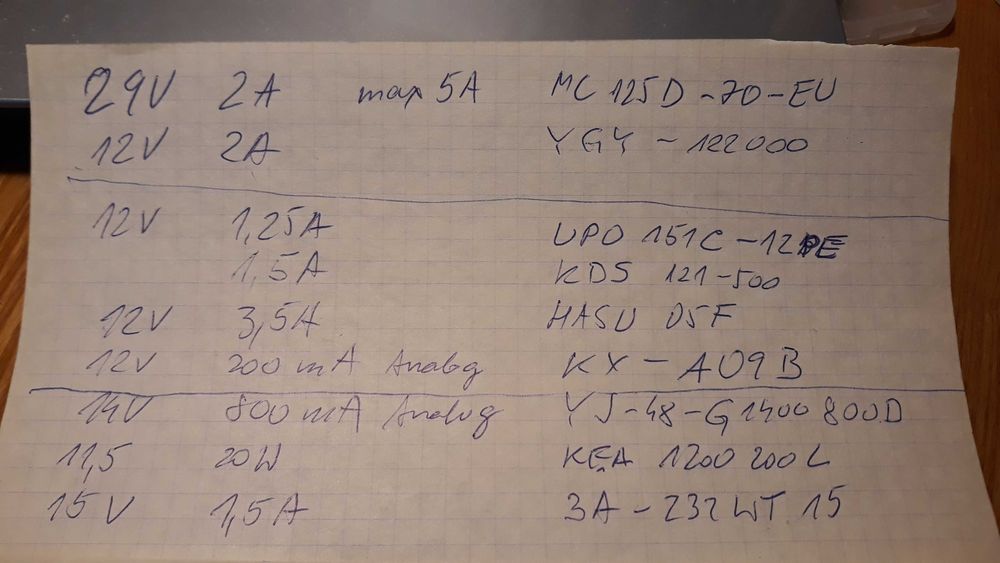 29V 2A max 5A MC 125D-70-EU
12V 2A YGY-122000
12V 1,25A UPO 151C-12PE
1,5A KDS 121-500
12V 3,5A HASU 05F
12V 200 mA Analog KX-A09B
14V 800 mA Analog YJ-48-G1400800D
11,5 20W KEA 1200200L
15V 1,5A 3A-232WT 15